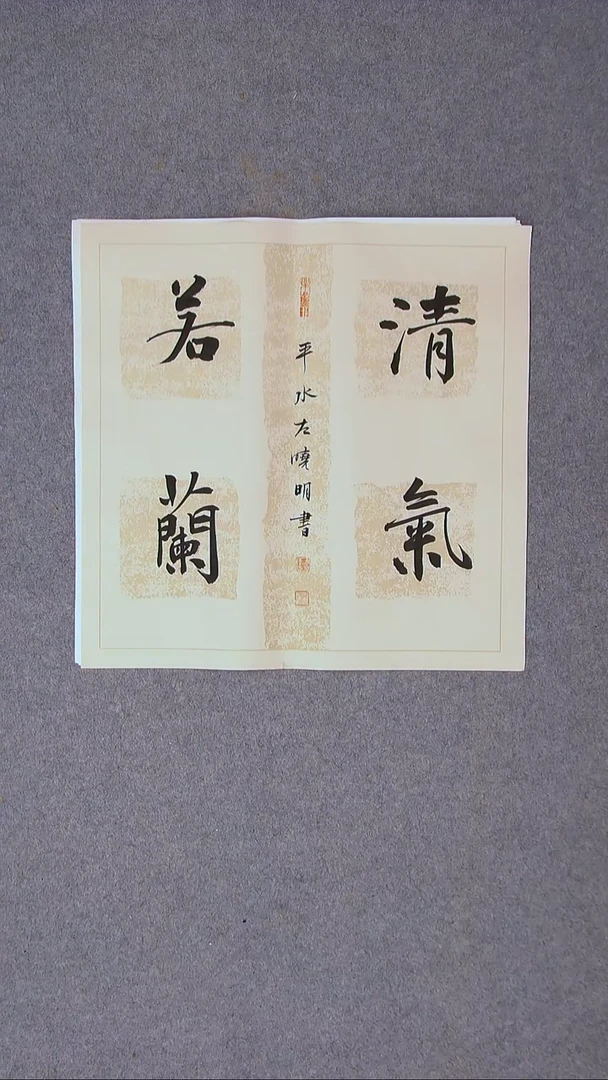 清氣
若蘭
平水左曉明書